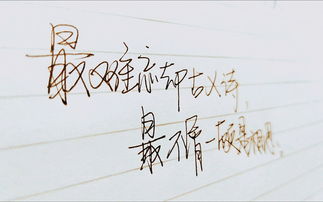 最难忘却古人诗,
最不屑一顾是相思。